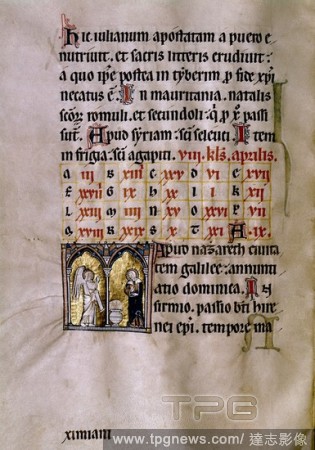 hic iulianum apostatam a puero e
nutriuit. et sacris litteris erudiuit:
a quo ipse postea in tyberim p fide xpi
necatus ē. In mauritania. natalis
scōr romuli. et secundoli: q p x passi
sūt. Apud syriam: sci seleuci. Item
in frigia: sci agapiti. viii. kls. aprilis.
a B C D E
iii xiiii xv vi xvii
f G h i k
xxvii ix x i
l m n o P
xiii iiii xv xxvi vii
q R S T A
xviii xxix x xxi ix.
Apud nazareth ciuita
tem galilee: annunti
atio dominica. In
sirmio. passio bti hire
nei epi. tempore ma
ximiani
TPG
www.tpgnews.com/ 達志影像